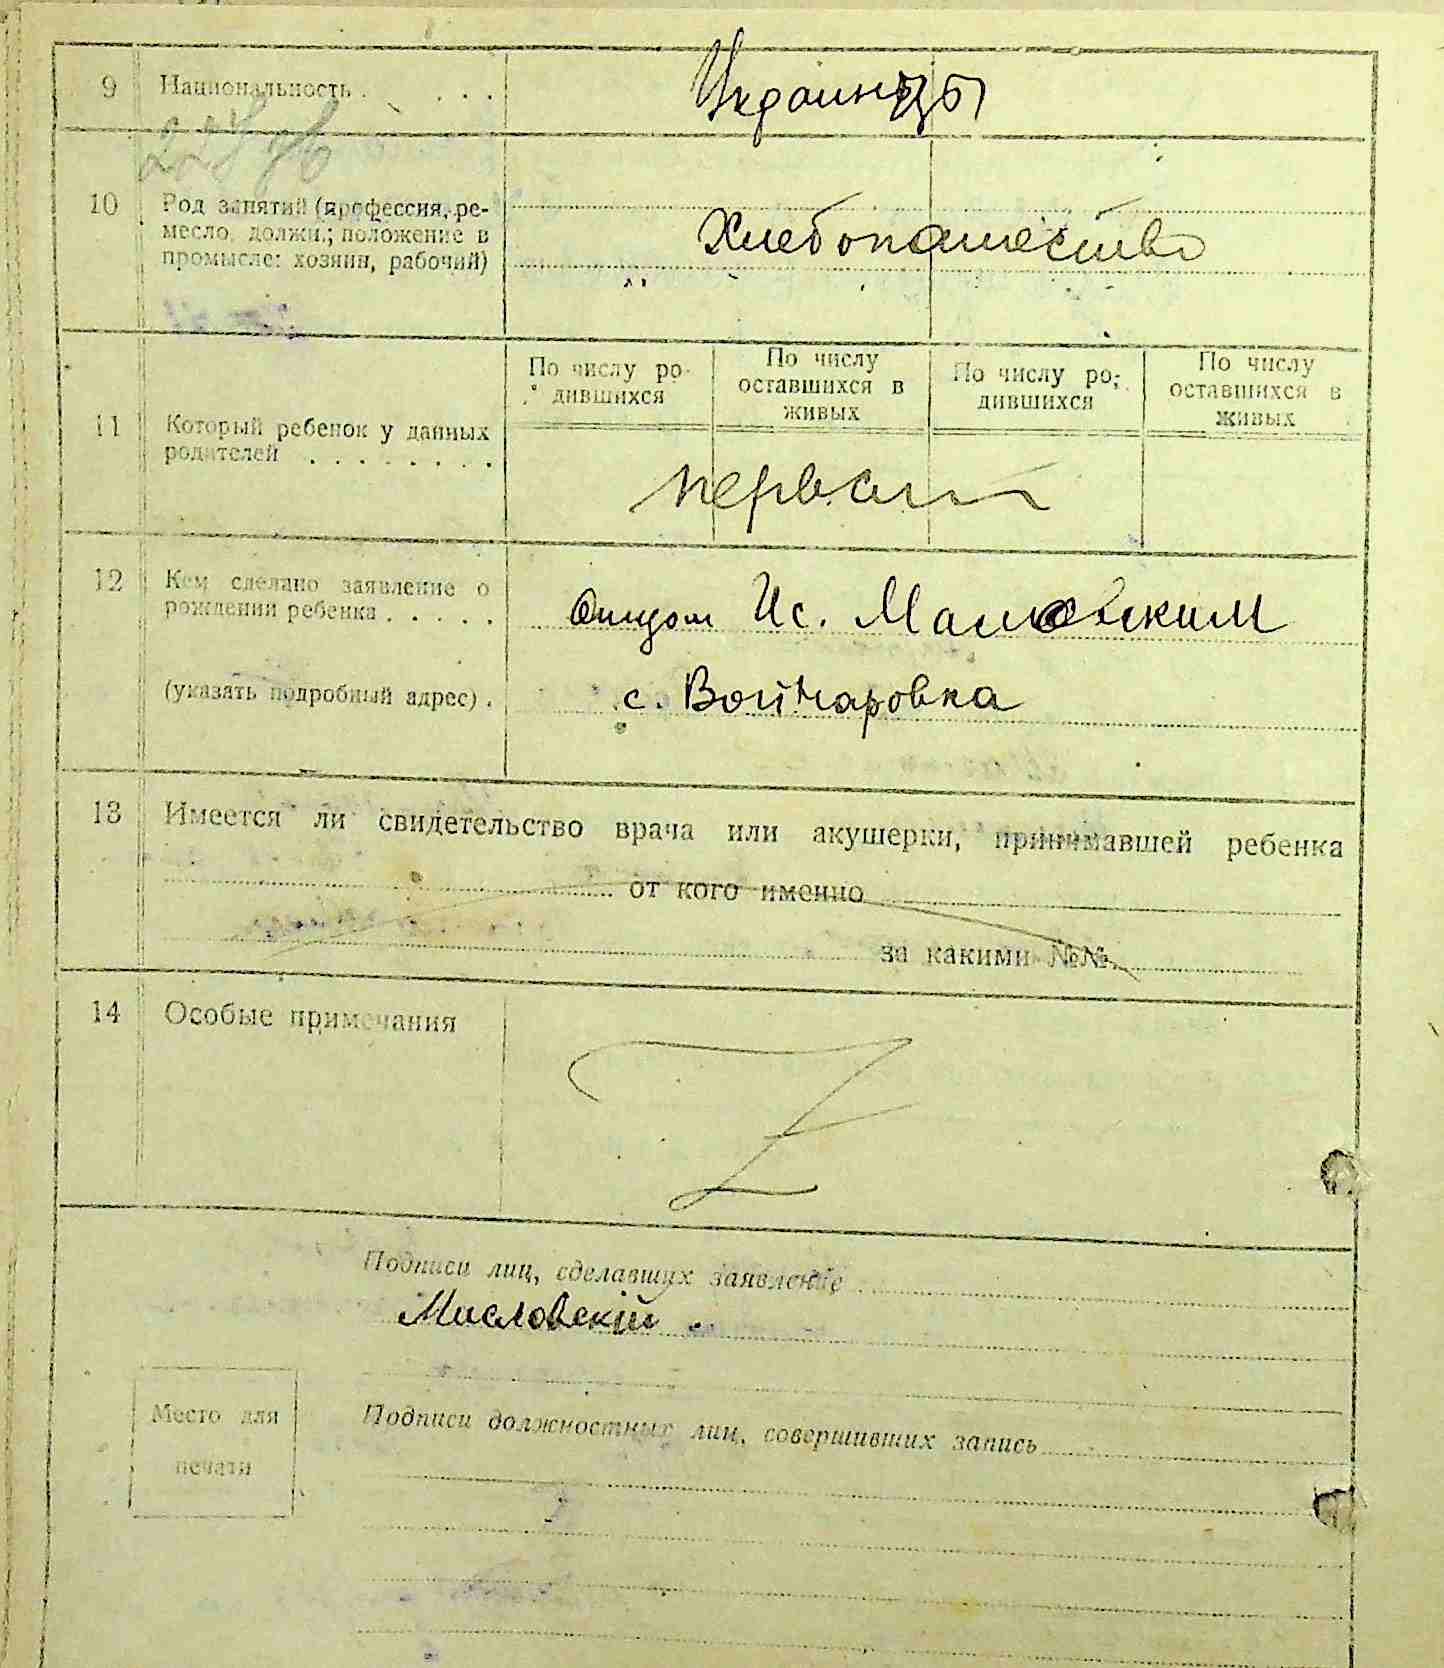 9 Национальность . . . . . Украинцы
10 Род занятий (профессия, ре-
месло, должн.; положение в
промысле: хозяин, рабочий)
Хлебопашество
По числу ро-
дившихся
По числу
оставшихся в
живых
По числу ро-
дившихся
По числу
оставшихся в
живых
11 Который ребенок у данных
родителей . . . . . . . .
первый
12 Кем сделано заявление о
рождении ребенка . . . . .
Отцом Ис.
(указать подробный адрес) .
с. Войтаровка
13 Имеется ли свидетельство врача или акушерки, принимавшей ребенка
от кого именно
за какими №№
14 Особые примечания
Подписи лиц, сделавших заявление
Мисловскій
Место для
печати
Подписи должностных лиц, совершивших запись